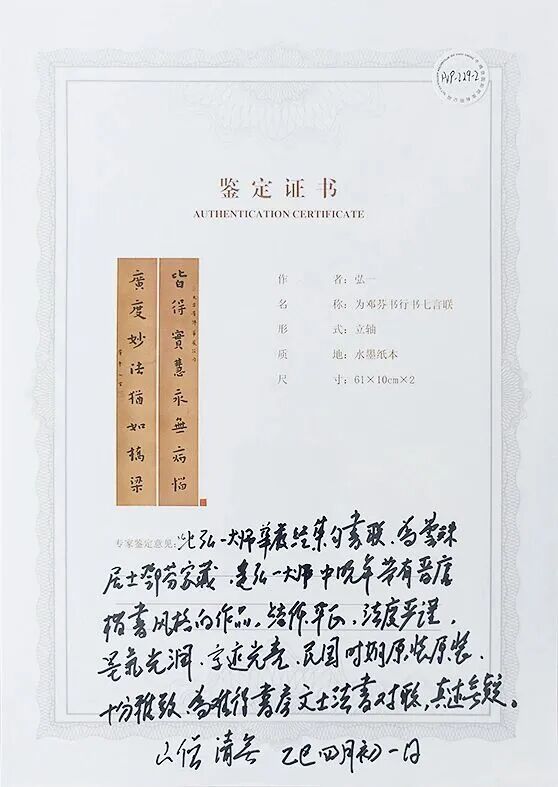 PVP-229-2
鉴定证书
AUTHENTICATION CERTIFICATE
皆得實慧永無病惱
廣度妙法猶如橋梁
作者：弘一
名称：为邓芬书行书七言联
形式：立轴
质地：水墨纸本
尺寸：61×10cm×2
专家鉴定意见：此弘一大师華嚴经集句書联，為曇殊
居士鄧芬家藏，是弘一大师中晚年带有晋唐
楷書风格的作品，结体平正，法度严谨，
墨氣光润，字迹完整，民国时期原装原裱，
十分雅致，為难得書房文士法書对联，真迹無疑。
山僧 清 乙巳四月初一日